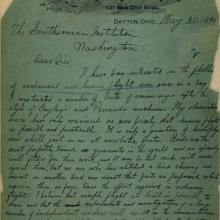 1127 West Third Street
DAYTON, OHIO. May 30, 1899
The Smithsonian Institution
Washington
Dear Sirs:
I have been interested in the problem
of mechanical and human flight ever since as a boy
I constructed a number of bats of various sizes after the
style of Cayley's and Pénaud's machines. My observations
since have only convinced me more firmly that human flight
is possible and practicable. It is only a question of knowledge
and skill just as in all acrobatic feats. Birds are the
most perfectly trained gymnasts in the world and are specially
well fitted for their work, and it may be that man will never
equal them, but no one who has watched a bird chasing an
insect or another bird can doubt that feats are performed which
require three or four times the effort required in ordinary
flight. I believe that simple flight at least is possible to
man and that the experiments and investigations of a large
number of independent workers will